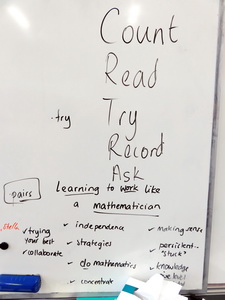 Count
Read
.try Try
Record
Ask
pairs
Learning to work like
a mathematician
Stella.
✓ trying your best
✓ collaborate
✓ independence
✓ strategies
✓ do mathematics
✓ concentrate
✓ making sense
✓ persistent - "stuck"
✓ knowledge